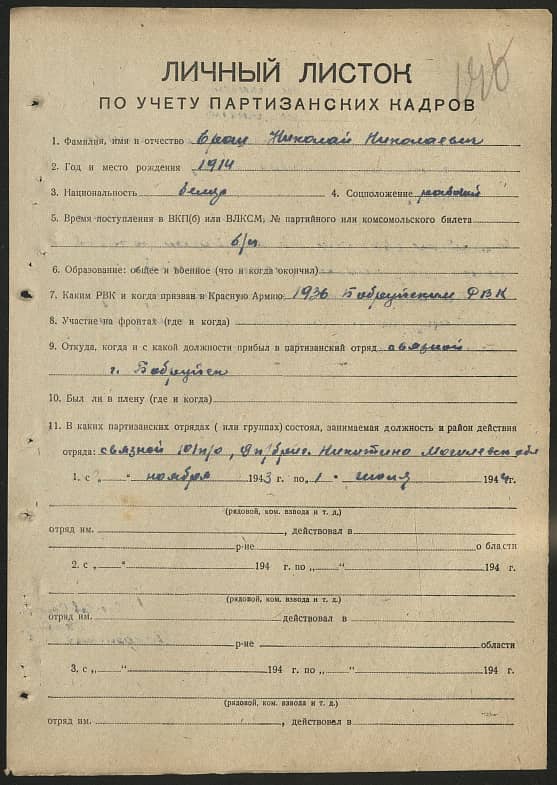 ЛИЧНЫЙ ЛИСТОК
ПО УЧЕТУ ПАРТИЗАНСКИХ КАДРОВ
1. Фамилия, имя и отчество Николай Николаевич
2. Год и место рождения 1914
3. Национальность белор 4. Соцположение рабочий
5. Время поступления в ВКП(б) или ВЛКСМ, № партийного или комсомольского билета
б/п
6. Образование: общее и военное (что и когда окончил)
7. Каким РВК и когда призван в Красную Армию 1936 Бобруйским РВК
8. Участие на фронтах (где и когда)
9. Откуда, когда и с какой должности прибыл в партизанский отряд связной
г. Бобруйск
10. Был ли в плену (где и когда)
11. В каких партизанских отрядах ( или группах) состоял, занимаемая должность и район действия
отряда: связной п/о, 9 п/бриг. Никитино Могилевск обл
1. с „ “ ноября 1943 г. по „ 1 “ июля 1944 г.
(рядовой, ком. взвода и т. д.)
отряд им. , действовал в
р-не области
2. с „ “ 194 г. по „ “ 194 г.
(рядовой, ком. взвода и т. д.)
отряд им. действовал в
р-не области
3. с „ “ 194 г. по „ “ 194 г.
(рядовой, ком. взвода и т. д.)
отряд им. , действовал в